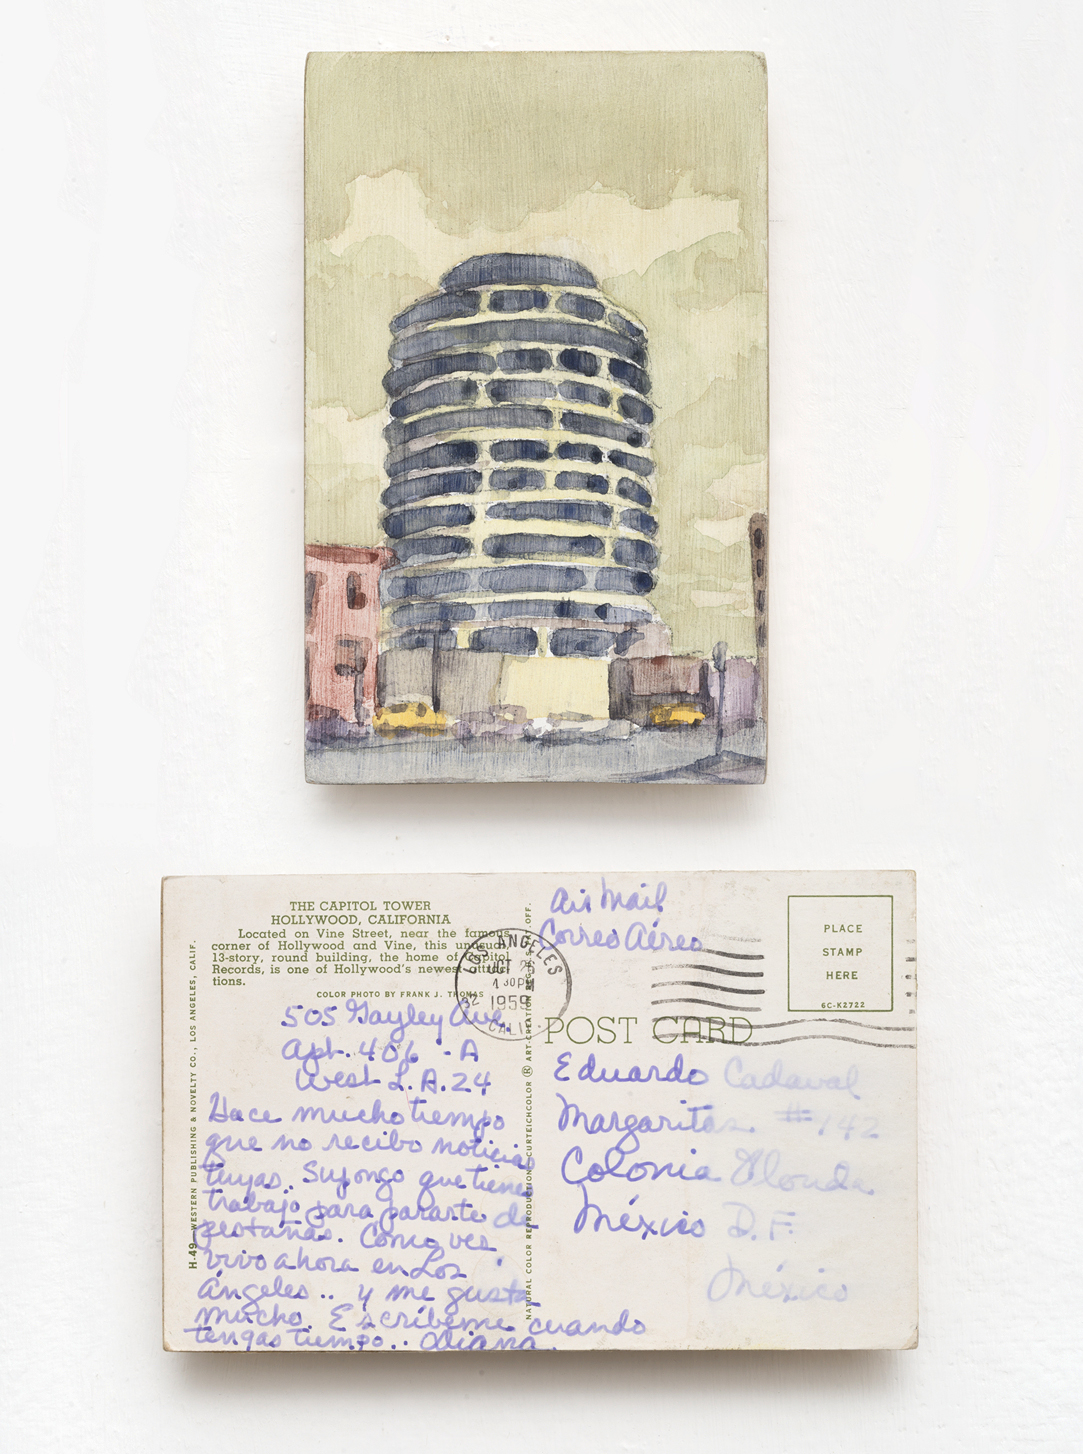 THE CAPITOL TOWER
HOLLYWOOD, CALIFORNIA
Located on Vine Street, near the famous
corner of Hollywood and Vine, this unusual,
13-story, round building, the home of Capitol
Records, is one of Hollywood's newest attrac-
tions.
COLOR PHOTO BY FRANK J. THOMAS
H-49 WESTERN PUBLISHING & NOVELTY CO., LOS ANGELES, CALIF.
505 Gayley Ave.
Apt. 406 - A
West L.A. 24
Hace mucho tiempo
que no recibo noticias
tuyas.. Supongo que tienes
trabajo para pararte de
pestañas. Como ves
vivo ahora en Los
Ángeles.. y me gusta
mucho. Escríbeme cuando
tengas tiempo..
NATURAL COLOR REPRODUCTION CURTEICHCOLOR ® ART-CREATION REG. U.S. OFF.
LOS ANGELES
OCT
1 30PM
1959
CALIF.
Air Mail
Correo Aéreo
PLACE
STAMP
HERE
6C-K2722
POST CARD
Eduardo Cadaval
Margaritas #142
Colonia
México D.F.
México